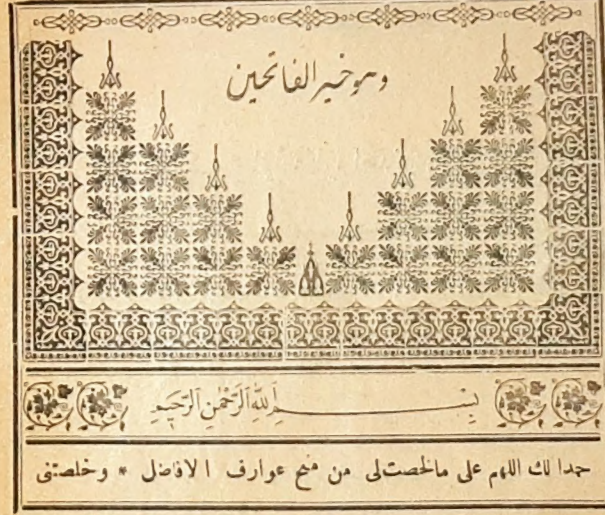 وهو خير الفاتحين
بِسْمِ اللّٰهِ الرَّحْمٰنِ الرَّحِيمِ
حمدا لك اللهم على مالخصت لى من منح عوارف الافاضل * وخلصتنى